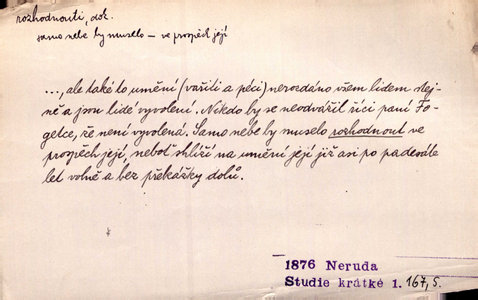 rozhodnouti, dok.
samo nebe by muselo – ve prospěch její
..., ale také to umění (vařiti a péci) nerozdáno všem lidem stej-
ně a jsou lidé vyvolení. Nikdo by se neodvážil říci paní Fo-
getce, že není vyvolená. Samo nebe by muselo rozhodnout ve
prospěch její, neboť shlíží na umění její již asi po padesáte
let volně a bez překážky dolů.
1876 Neruda
Studie krátké 1. 167,5.